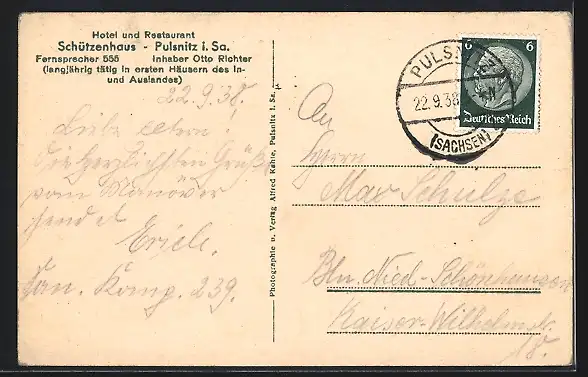 Hotel und Restaurant
Schützenhaus - Pulsnitz i. Sa.
Fernsprecher 555 Inhaber Otto Richter
(langjährig tätig in ersten Häusern des In-
und Auslandes)
22.9.38.
Liebe Eltern!
Die herzlichsten Grüße
vom Manöver
sendet
Erich.
San. Komp. 239.
Photographie u. Verlag Alfred Kahle, Pulsnitz i. Sa.
PULSNITZ
22.9.38
(SACHSEN)
6 6
Deutsches Reich
An
Herrn
Max Schulze
Bln. Nied-Schönhausen
Kaiser-Wilhelmstr.
18.